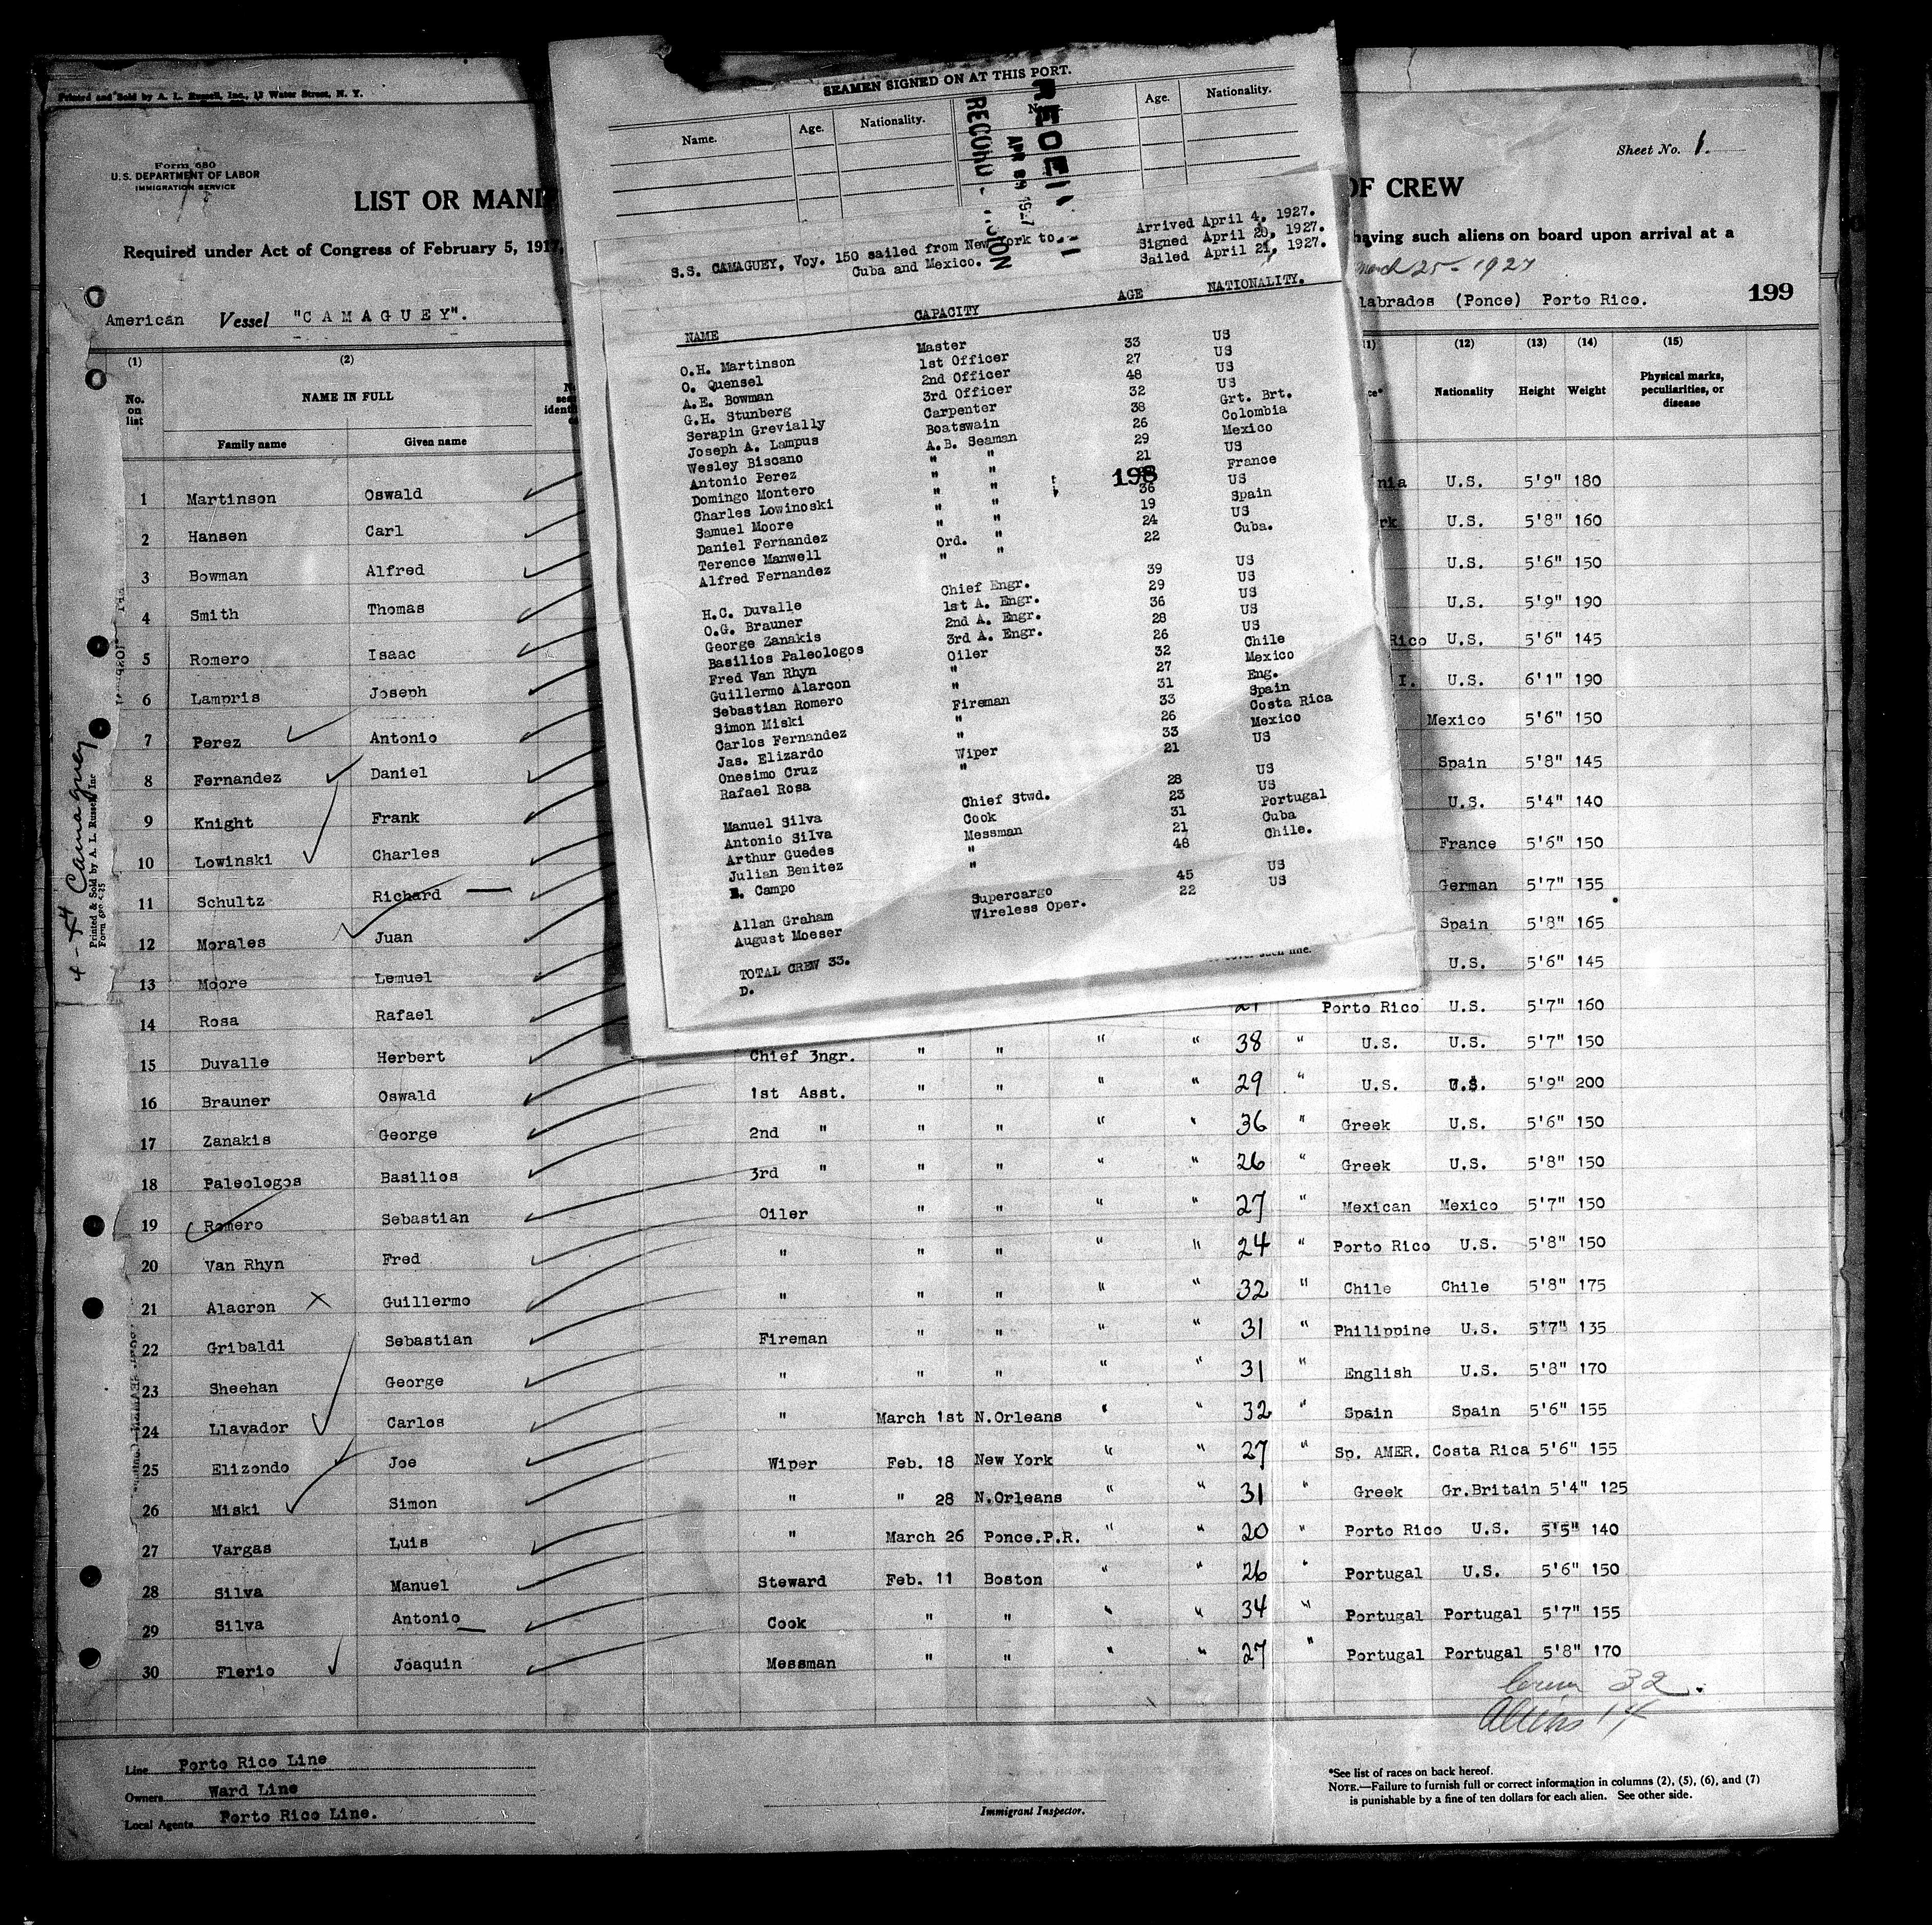 Printed and Sold by A. L. Russell, Inc., 13 Water Street, N. Y.
Form 680
U.S. DEPARTMENT OF LABOR
IMMIGRATION SERVICE
Sheet No. 1.
LIST OR MANI
OF CREW
Required under Act of Congress of February 5, 1917,
having such aliens on board upon arrival at a
March 25 - 1927
American Vessel "CAMAGUEY".
labrados (Ponce) Porto Rico.
199
SEAMEN SIGNED ON AT THIS PORT.
Name. Age. Nationality. Age. Nationality.
S.S. CAMAGUEY, Voy. 150 sailed from New York to
Cuba and Mexico.
Arrived April 4, 1927.
Signed April 20, 1927.
Sailed April 21, 1927.
NAME CAPACITY AGE NATIONALITY.
O.H. Martinson Master 33 US
O. Quensel 1st Officer 27 US
A.E. Bowman 2nd Officer 48 US
G.H. Stunberg 3rd Officer 32 US
Serapin Grevially Carpenter 38 Grt. Brt.
Joseph A. Lampus Boatswain 26 Colombia
Wesley Biscano A.B. Seaman 29 Mexico
Antonio Perez " " 21 US
Domingo Montero " " France
198
Charles Lowinoski " " 36 US
Samuel Moore " " 19 Spain
Daniel Fernandez " " 24 US
Terence Manwell Ord. " 22 Cuba.
Alfred Fernandez " "
H.C. Duvalle Chief Engr. 39 US
O.G. Brauner 1st A. Engr. 29 US
George Zanakis 2nd A. Engr. 36 US
Basilios Paleologos 3rd A. Engr. 28 US
Fred Van Rhyn Oiler 26 US
Guillermo Alarcon " 32 Chile
Sebastian Romero " 27 Mexico
Simon Miski Fireman 31 Eng.
Carlos Fernandez " 33 Spain
Jas. Elizardo " 26 Costa Rica
Onesimo Cruz Wiper 33 Mexico
Rafael Rosa " 21 US
Manuel Silva Chief Stwd. 28 US
Antonio Silva Cook 23 US
Arthur Guedes Messman 31 Portugal
Julian Benitez " 21 Cuba
Campo " 48 Chile.
Allan Graham Supercargo 45 US
August Moeser Wireless Oper. 22 US
TOTAL CREW 33.
D.
(1) (2) (12) (13) (14) (15)
No. on list NAME IN FULL Nationality Height Weight Physical marks, peculiarities, or disease
Family name Given name
1 Martinson Oswald nia U.S. 5'9" 180
2 Hansen Carl rk U.S. 5'8" 160
3 Bowman Alfred U.S. 5'6" 150
4 Smith Thomas U.S. 5'9" 190
5 Romero Isaac Rico U.S. 5'6" 145
6 Lampris Joseph I. U.S. 6'1" 190
7 Perez Antonio Mexico 5'6" 150
8 Fernandez Daniel Spain 5'8" 145
9 Knight Frank U.S. 5'4" 140
10 Lowinski Charles France 5'6" 150
11 Schultz Richard German 5'7" 155
12 Morales Juan Spain 5'8" 165
13 Moore Lemuel U.S. 5'6" 145
14 Rosa Rafael Porto Rico U.S. 5'7" 160
15 Duvalle Herbert Chief 3ngr. " " " " 38 " U.S. U.S. 5'7" 150
16 Brauner Oswald 1st Asst. " " " " 29 " U.S. U.S. 5'9" 200
17 Zanakis George 2nd " " " " " 36 " Greek U.S. 5'6" 150
18 Paleologos Basilios 3rd " " " " " 26 " Greek U.S. 5'8" 150
19 Romero Sebastian Oiler " " " " 27 " Mexican Mexico 5'7" 150
20 Van Rhyn Fred " " " " " 24 " Porto Rico U.S. 5'8" 150
21 Alacron Guillermo " " " " " 32 " Chile Chile 5'8" 175
22 Gribaldi Sebastian Fireman " " " " 31 " Philippine U.S. 5'7" 135
23 Sheehan George " " " " " 31 " English U.S. 5'8" 170
24 Llavador Carlos " March 1st N.Orleans " " 32 " Spain Spain 5'6" 155
25 Elizondo Joe Wiper Feb. 18 New York " " 27 " Sp. AMER. Costa Rica 5'6" 155
26 Miski Simon " " 28 N.Orleans " " 31 " Greek Gr.Britain 5'4" 125
27 Vargas Luis " March 26 Ponce.P.R. " " 20 " Porto Rico U.S. 5'5" 140
28 Silva Manuel Steward Feb. 11 Boston " " 26 " Portugal U.S. 5'6" 150
29 Silva Antonio Cook " " " " 34 " Portugal Portugal 5'7" 155
30 Flerio Joaquin Messman " " " " 27 " Portugal Portugal 5'8" 170
32.
Aliens 14
4-4 Camaguey
Printed & Sold by A. L. Russell, Inc
Line Porto Rico Line
Owners Ward Line
Local Agents Porto Rico Line.
Immigrant Inspector.
*See list of races on back hereof.
NOTE.—Failure to furnish full or correct information in columns (2), (5), (6), and (7)
is punishable by a fine of ten dollars for each alien. See other side.